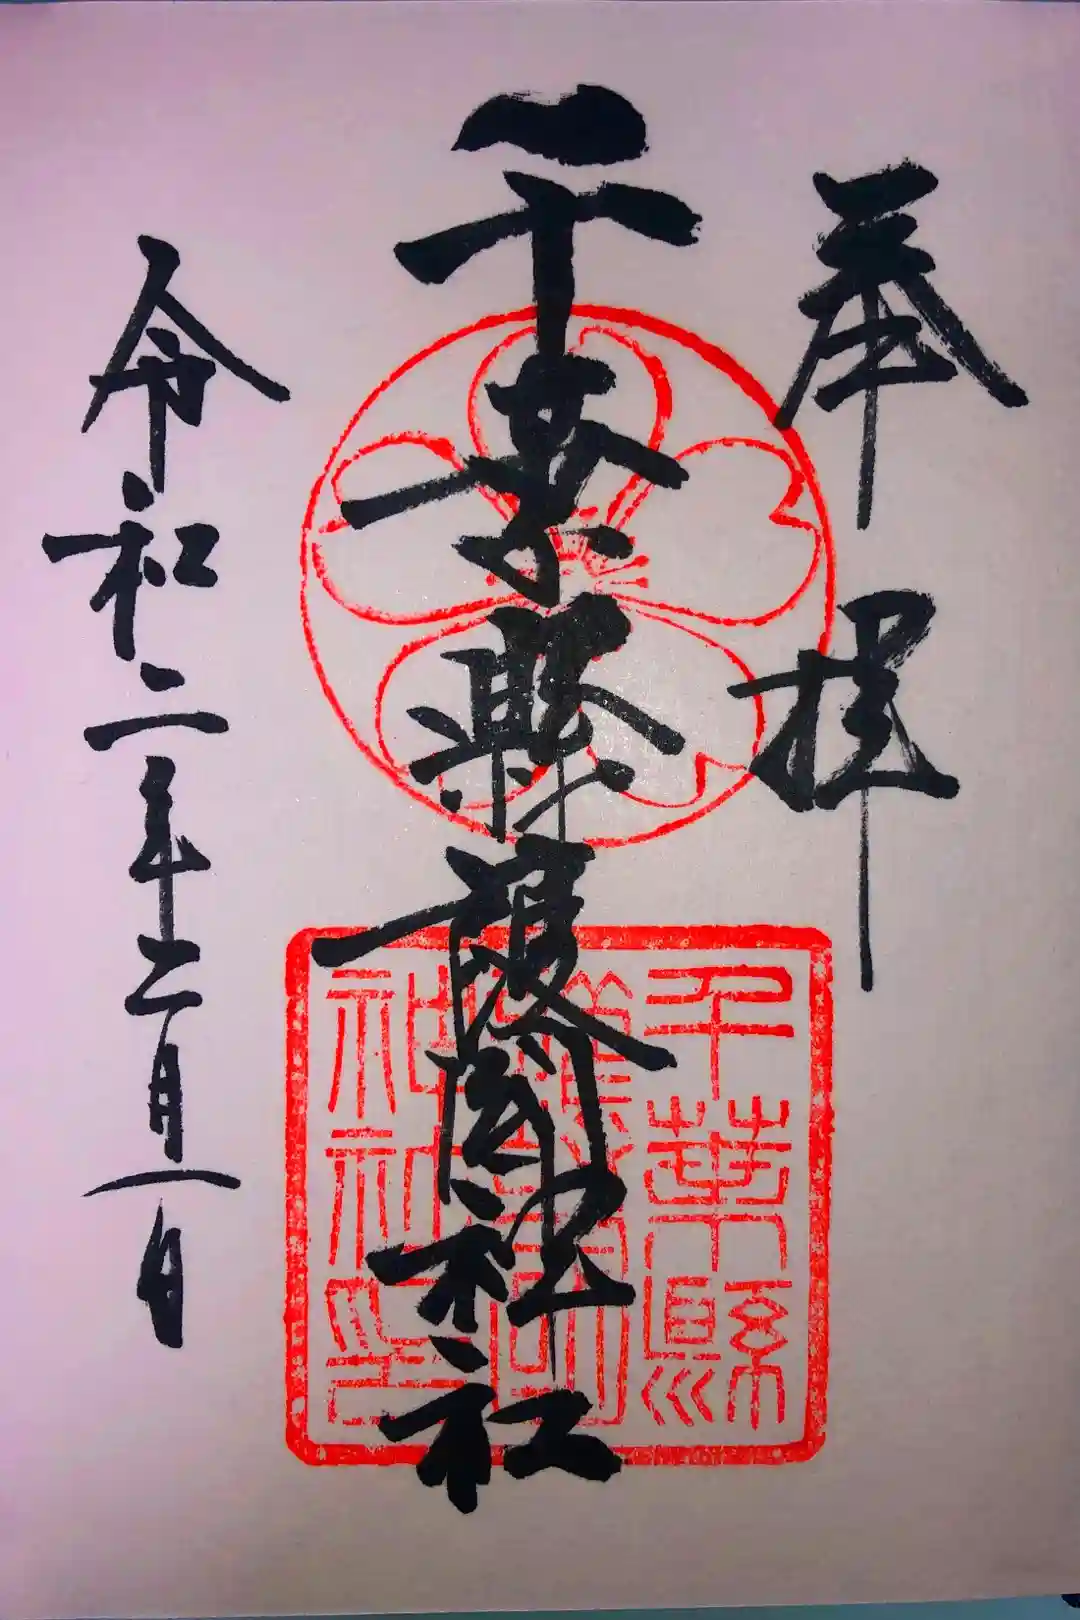 奉拝
千葉縣護國神社
令和二年二月一日
千葉縣
護國
神社印